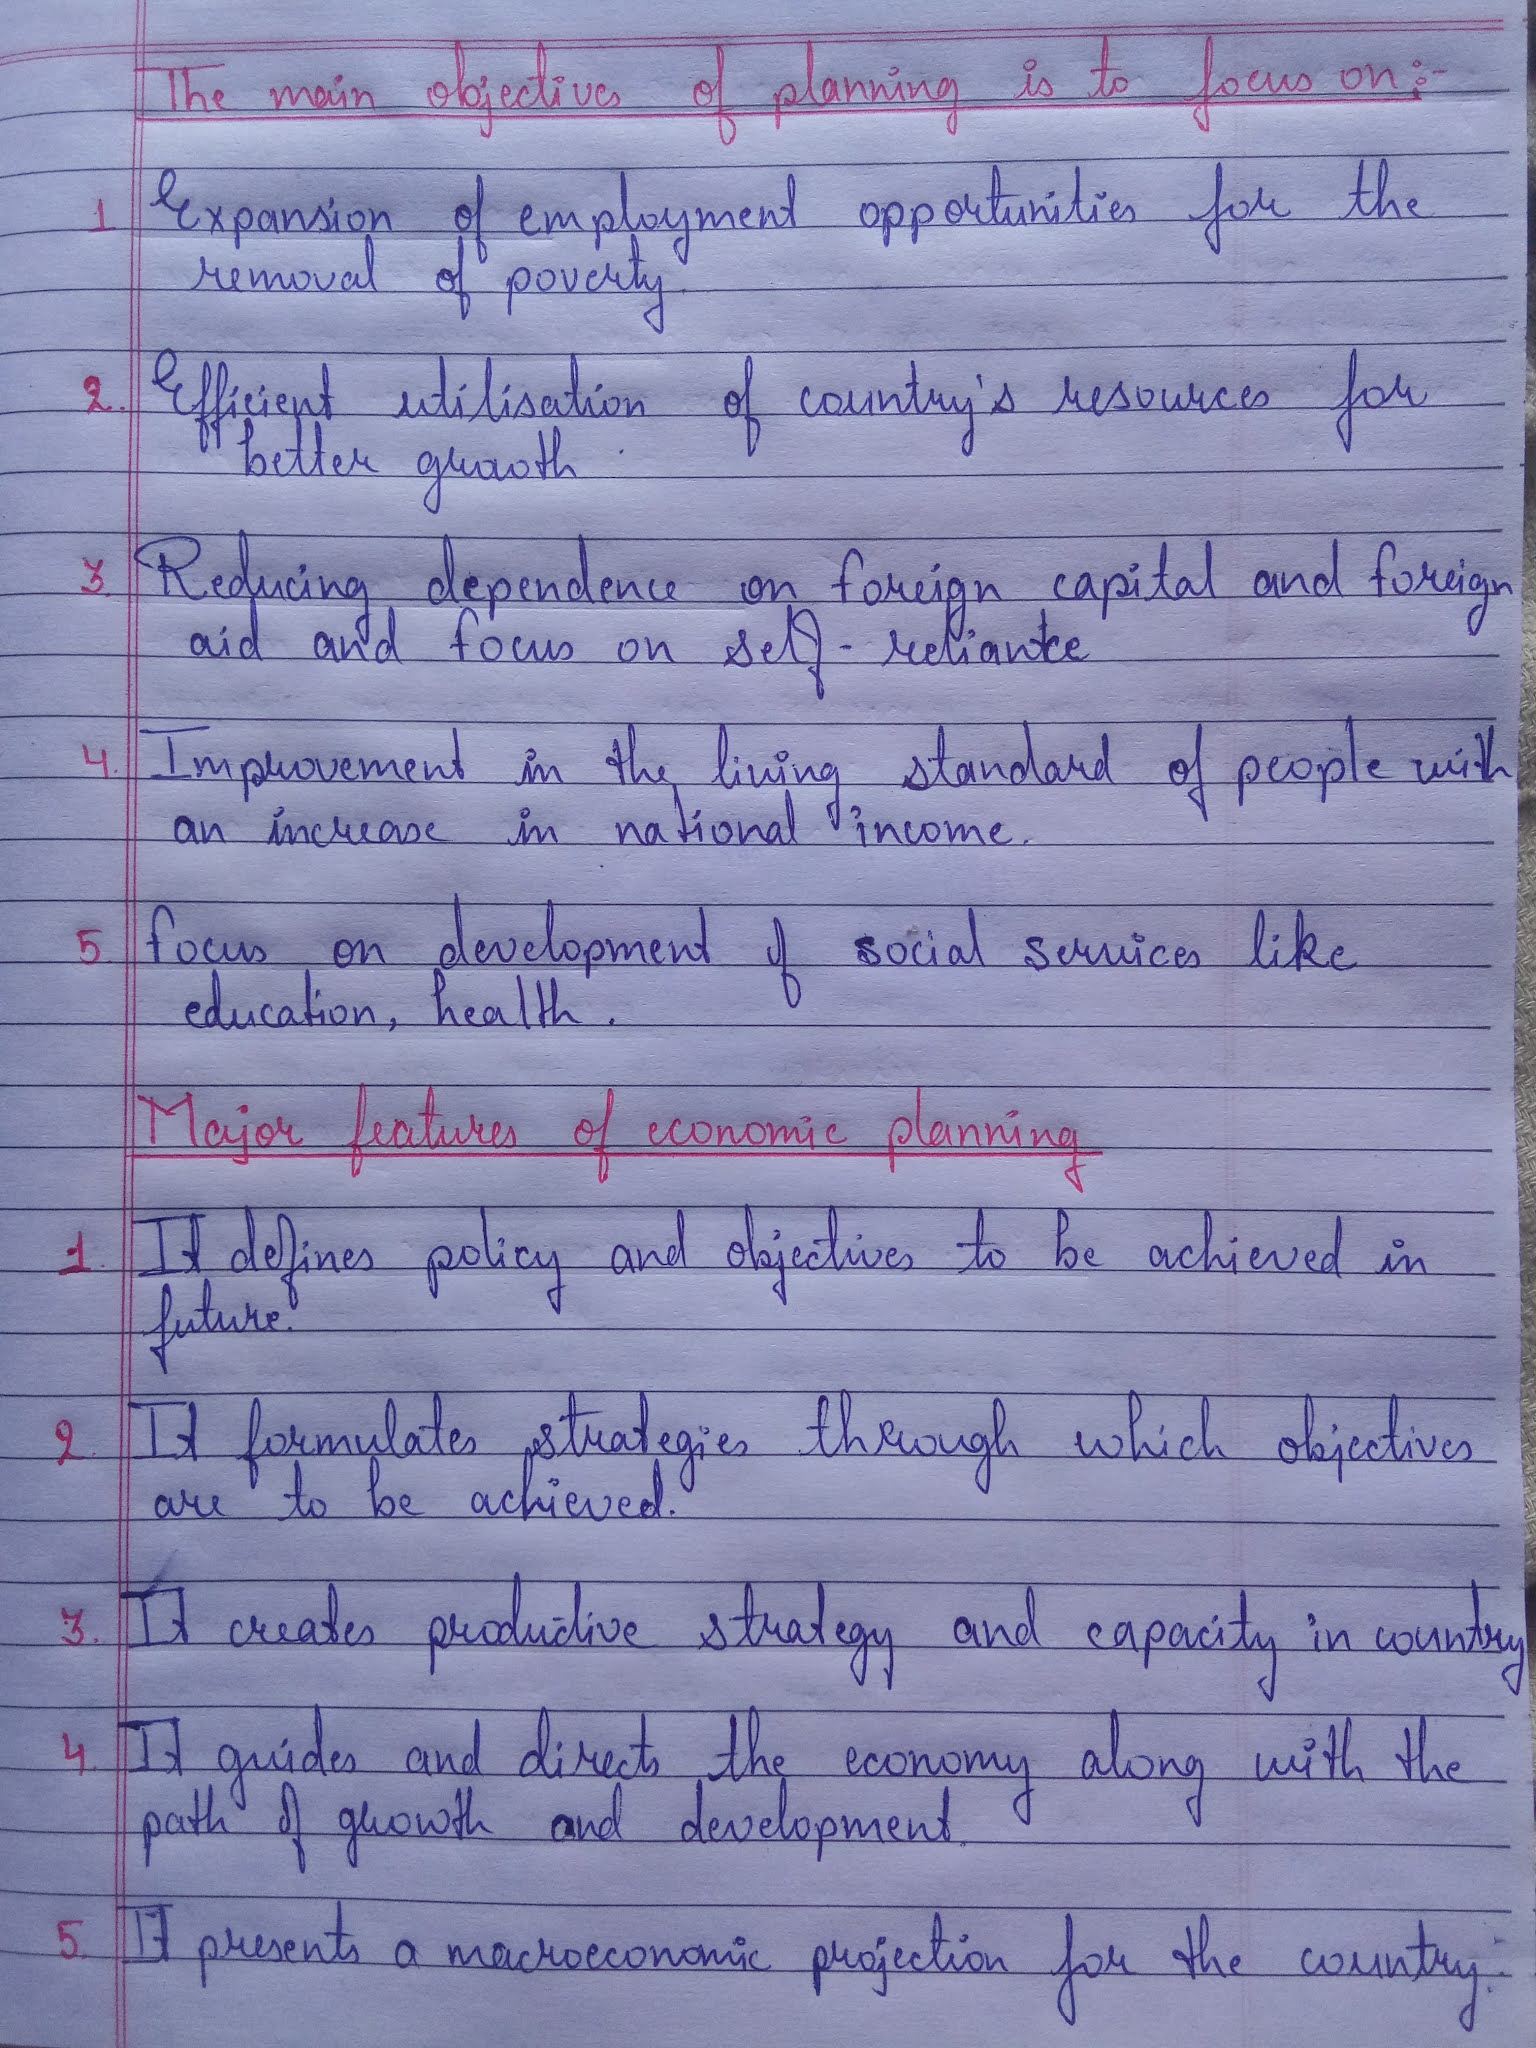 The main objectives of planning is to focus on:-
1. Expansion of employment opportunities for the
removal of poverty.
2. Efficient utilisation of country's resources for
better growth.
3. Reducing dependence on foreign capital and foreign
aid and focus on self-reliance
4. Improvement in the living standard of people with
an increase in national income.
5. focus on development of social services like
education, health.
Major features of economic planning
1. It defines policy and objectives to be achieved in
future.
2. It formulates strategies through which objectives
are to be achieved.
3. It creates productive strategy and capacity in country
4. It guides and directs the economy along with the
path of growth and development.
5. It presents a macroeconomic projection for the country.